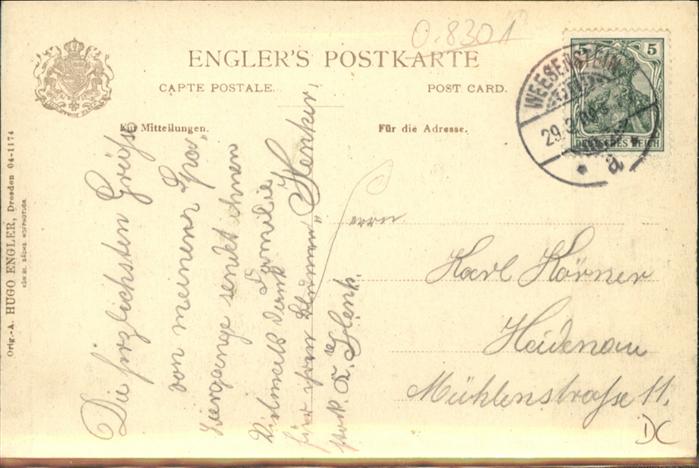 0.8301
ENGLER'S POSTKARTE
CARTE POSTALE.
POST CARD.
Für Mitteilungen.
Für die Adresse.
5 5
DEUTSCHES REICH
WEESENSTEIN
29.3.
Orig.-A. HUGO ENGLER, Dresden 04-1174
Die herzlichsten Grüße
von meinem Spa-
ziergange sendet ihnen
Familie Henker.
Vielmals Dank
für ihre Blumen
Herrn
Karl Körner
Heidenau
Mühlenstraße 11.
DC